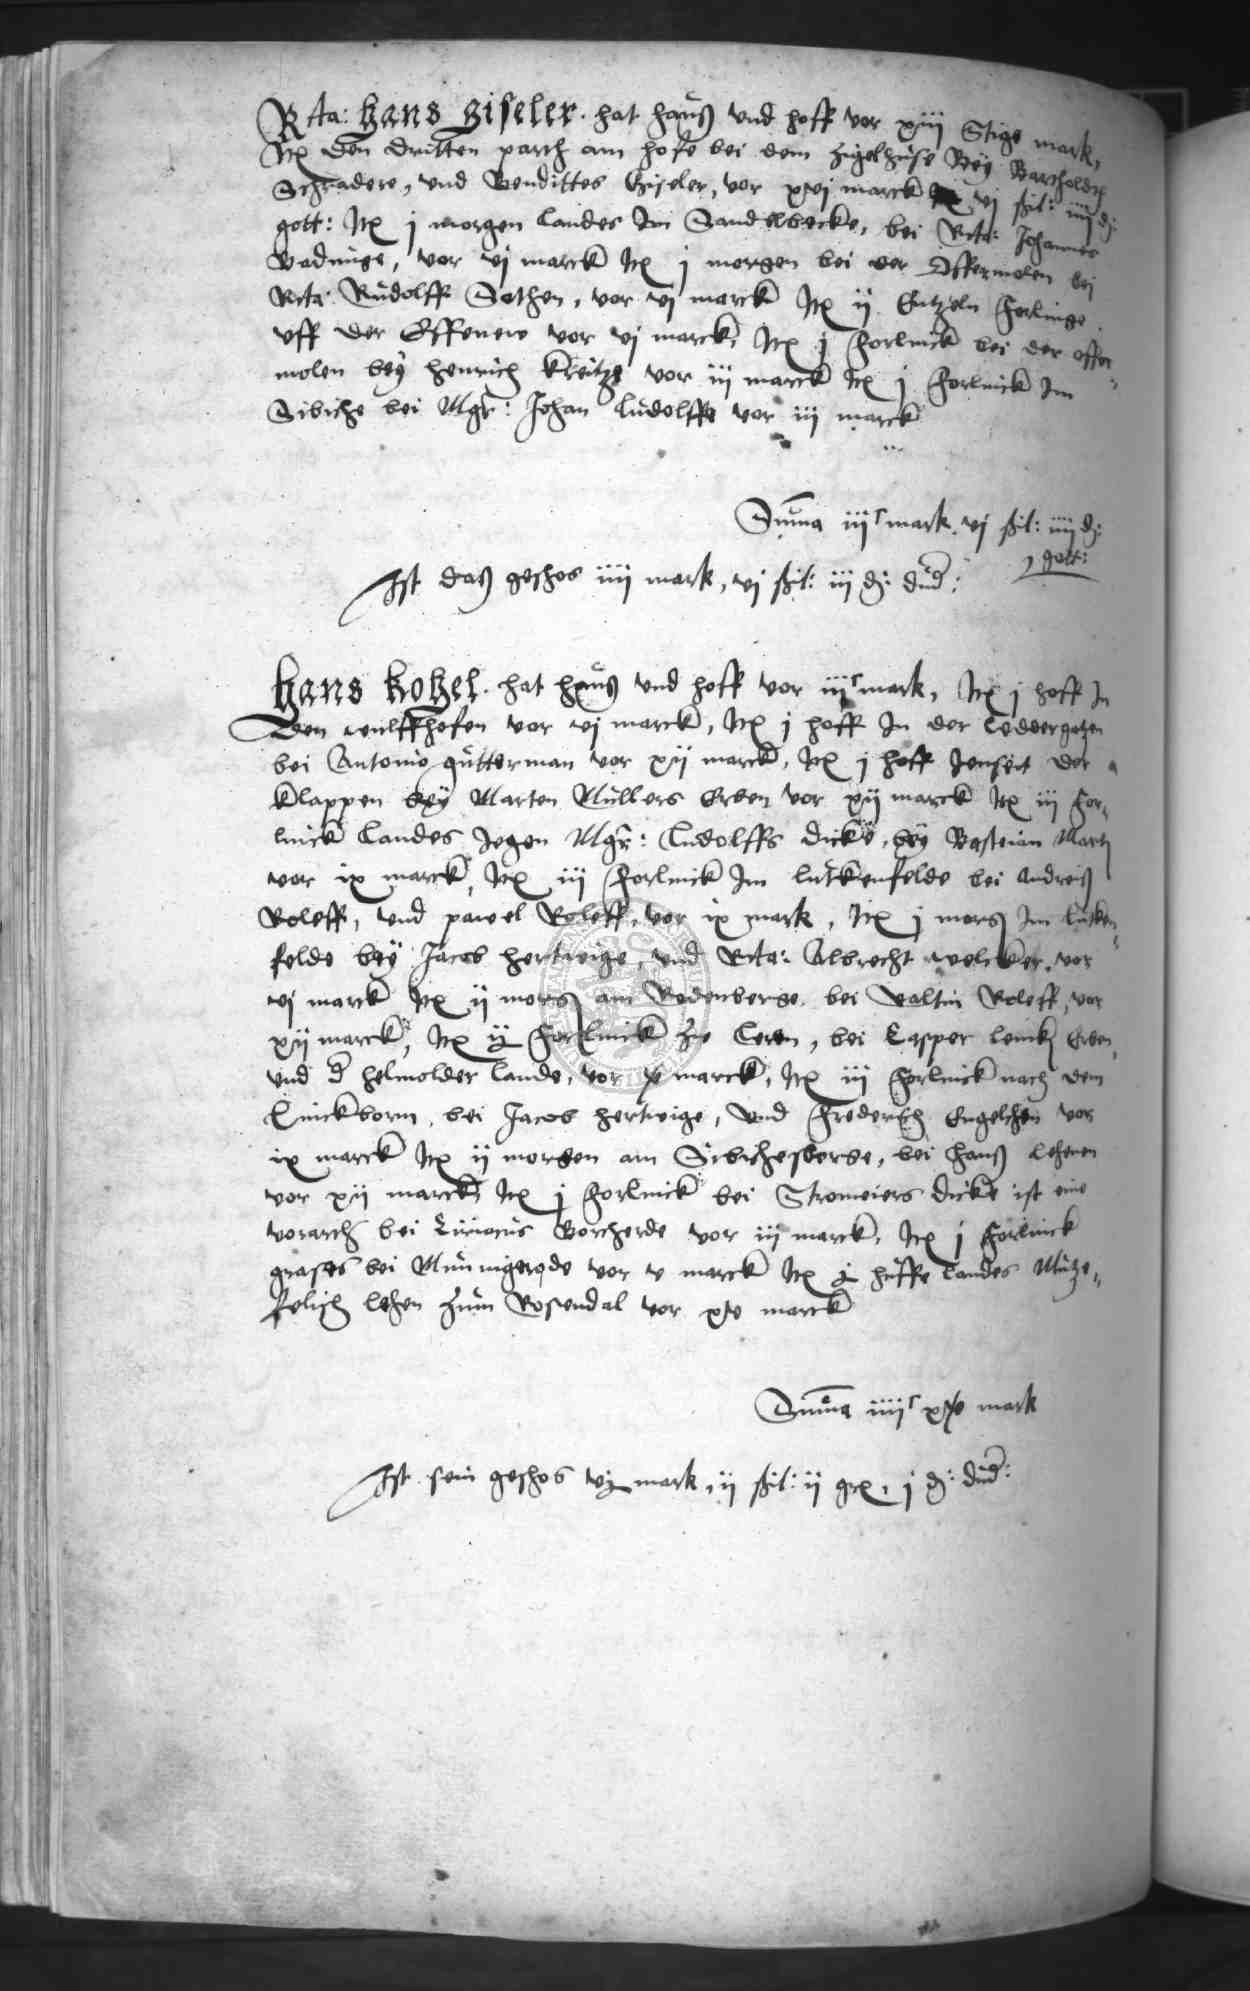 Rcta: Hans Giseler. hat hauß vnd hoff vor xiij Stige mark,
Itē den dritten parch am hofe bei dem zigelhuse Bey Bartholdē
Schradere, vnd Bendittes Giseler, vor xvj marck vj ßil: iiij d:
gott: Itē j morgen landes im Sandelbecke, bei Rcta: Johannes
Bodinge, vor vj marck Itē j morgen bei der Offermolen bei
Rcta: Rudolff Sothen, vor vj marck Itē ij Entzeln forlinge
vff der Effenew vor vj marck, Itē j forlinck bei der offer
molen bey Henrich Kreitze vor iij marck Itē j forlinck im
Sibiche bei Mgr: Johan Ludolffs vor iij marck
Suma iijc mark vj ßil: iiij d:
gott:
Ist daß geschos iiij mark, vj ßil: iij d: dud:
Hans Kohel. hat hauß vnd hoff vor iijc mark, Itē j hoff In
den wulffhofen vor vj marck, Itē j hoff In der Leddergatzen
bei Antonio gutterman vor xij marck, Itē j hoff Jenseit der
klappen bey Marten Mullers Erben vor xij marck Itē iij for-
linck landes Jegen Mgr: Ludolffs dicke, bey Bastian Marten
vor ix marck, Itē iij forlinck Im lutkenfelde bei Andreiß
Roleff, vnd pawel Roleff, vor ix mark, Itē j morg Im lutken-
felde bey Jacob hertwige, vnd Rcta: Albrecht welcker, vor
vj marck Itē ij morg am Rodenberge bei Valtin Roleff, vor
xij marck, Itē forlinck zw Leren, bei Casper lenick Erben,
vnd d helmolder lande, vor marck, Itē iij forlinck nach dem
Quickborn, bei Jacob hertwige, vnd frederich Engelchen vor
ix marck Itē ij morgen am Sibichesberge, bei hanß lehenen
vor xij marck, Itē j forlinck bei Stromeiers dicke ist eine
vorarch bei Ciriacus Borcherde vor iij marck, Itē j forlinck
grases bei Munnigerode vor v marck Itē huffe landes Mutze-
felisch lehen zum Rosendal vor xv marck
Suma iiijc mark
Ist sein geschos mark, ij ßil: ij grē, j d: dud: